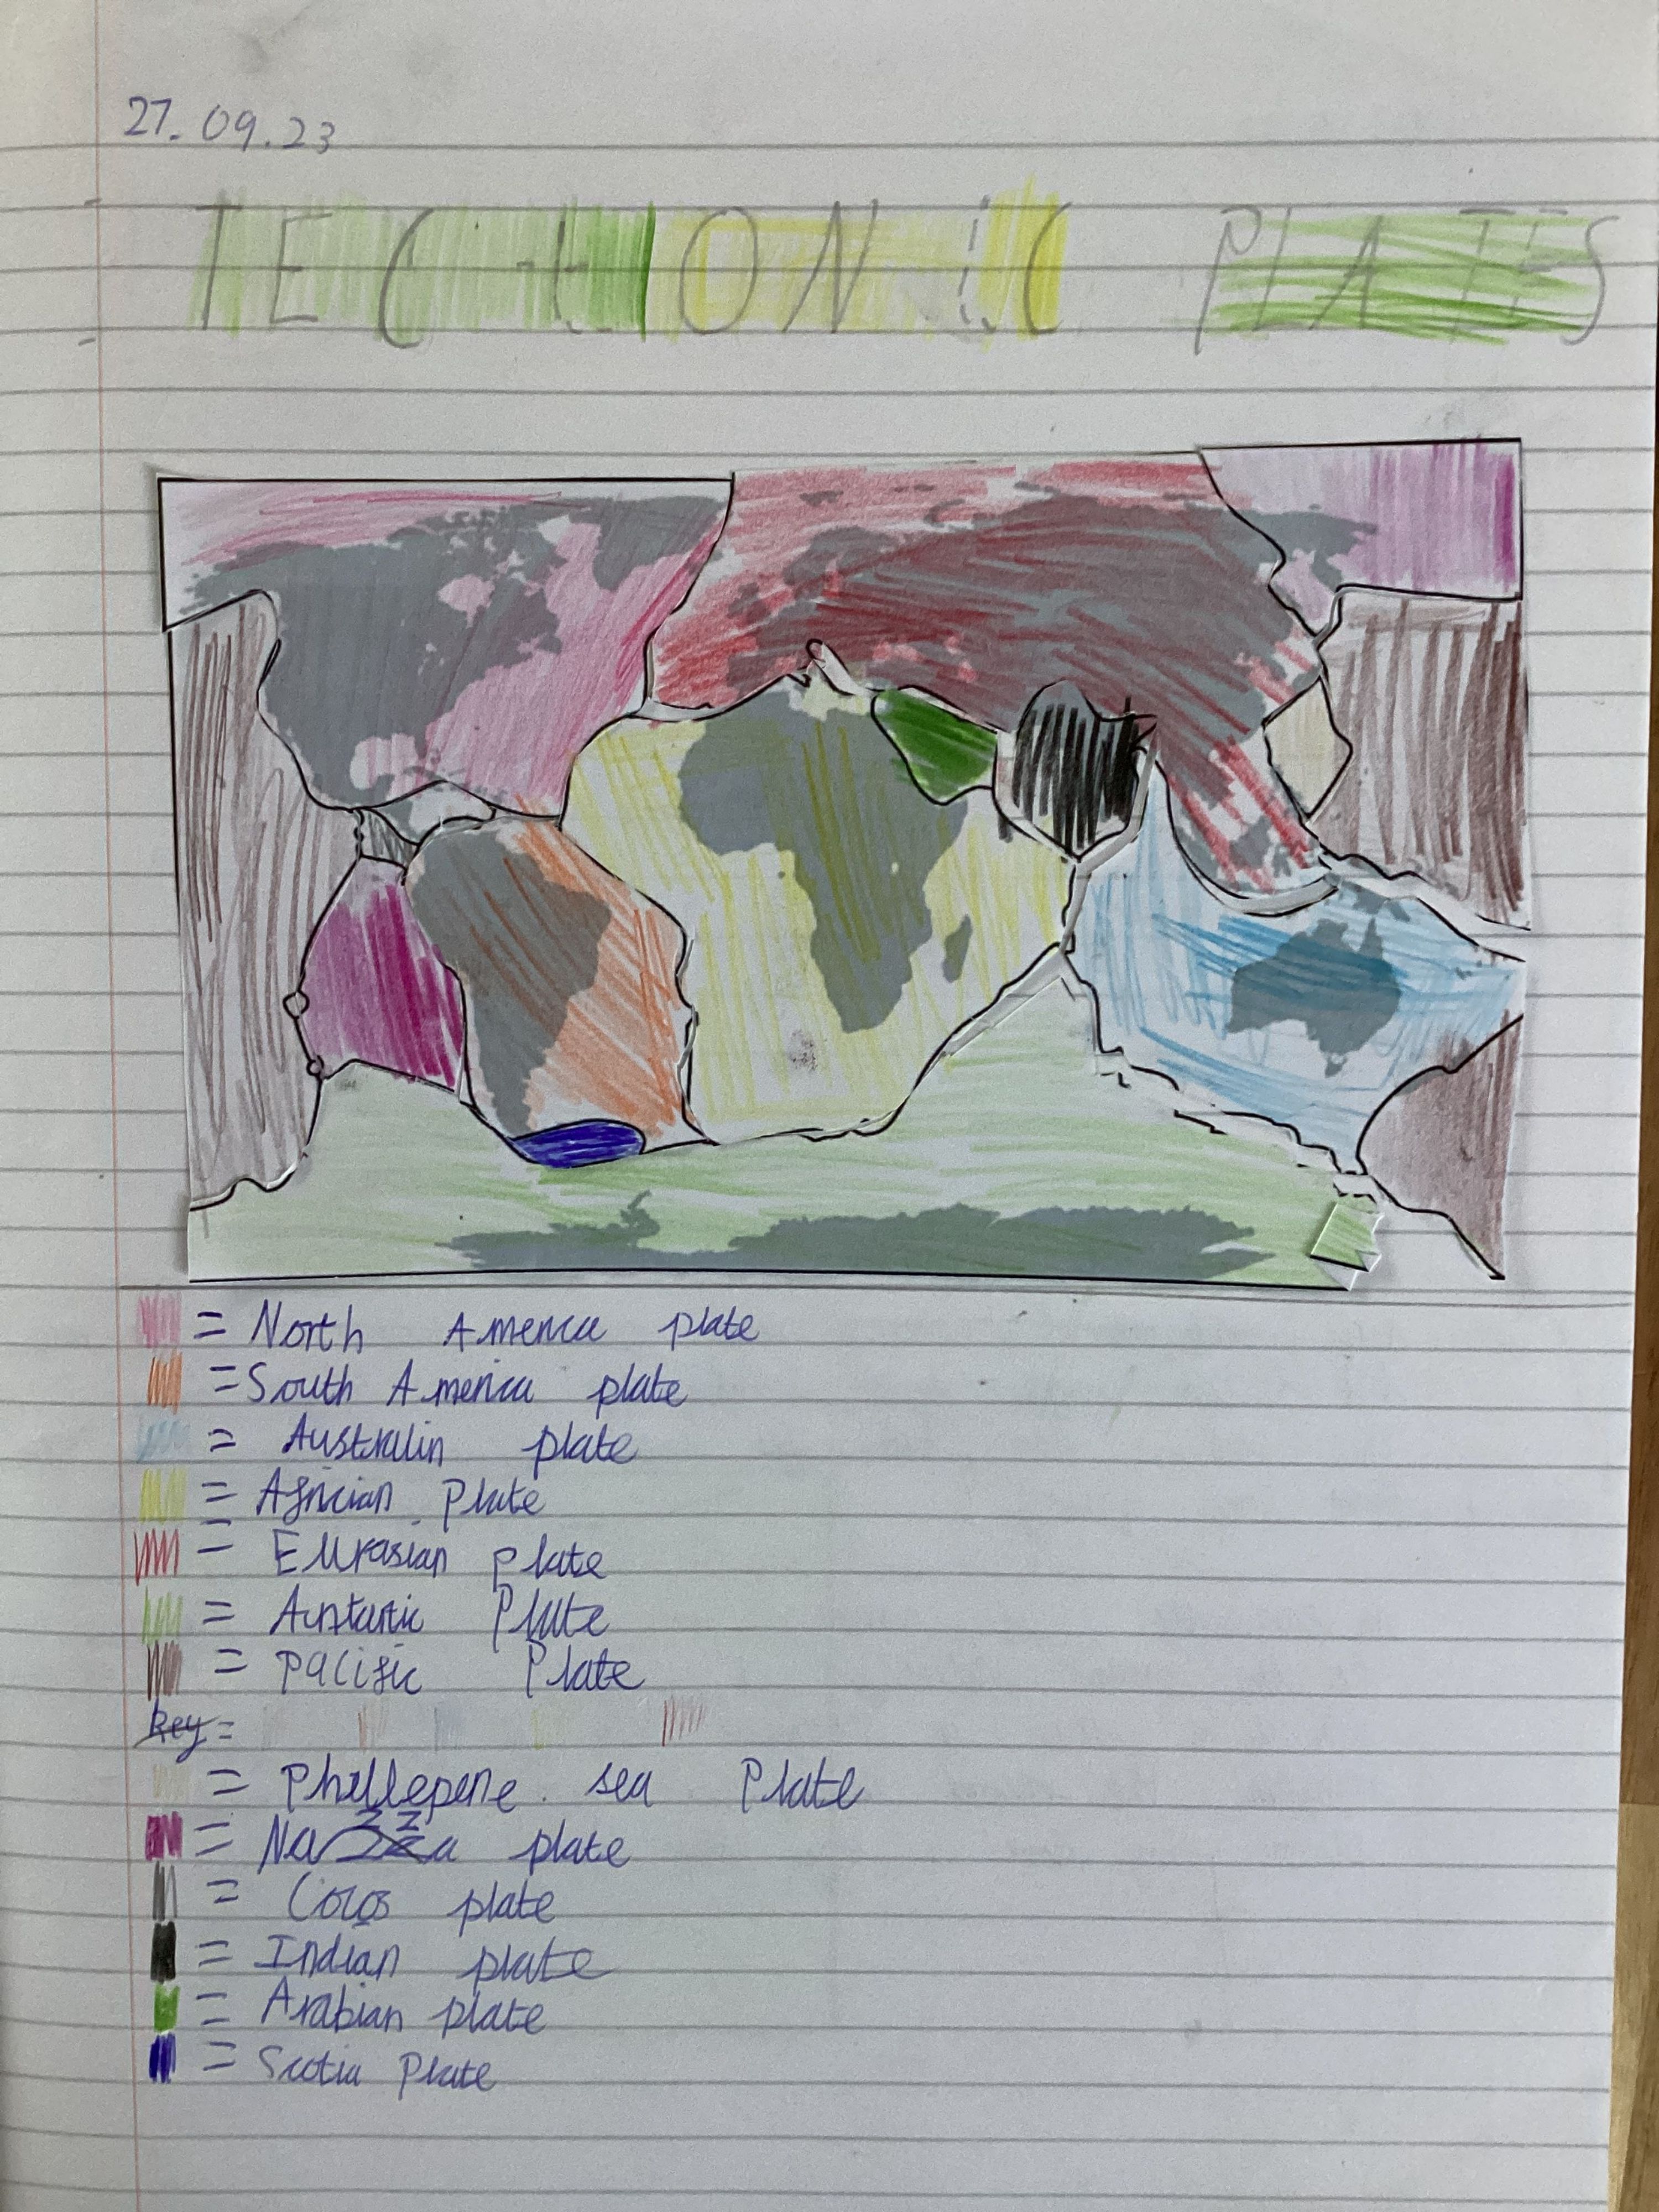 27.09.23
TECtONiC PLATES
= North America plate
= South America plate
= Australin plate
= Africian Plate
= Eurasian plate
= Antartic Plate
= Pacific Plate
key =
= Phillepene sea Plate
= Nazza plate
= Cocos plate
= Indian plate
= Arabian plate
= Scotia Plate